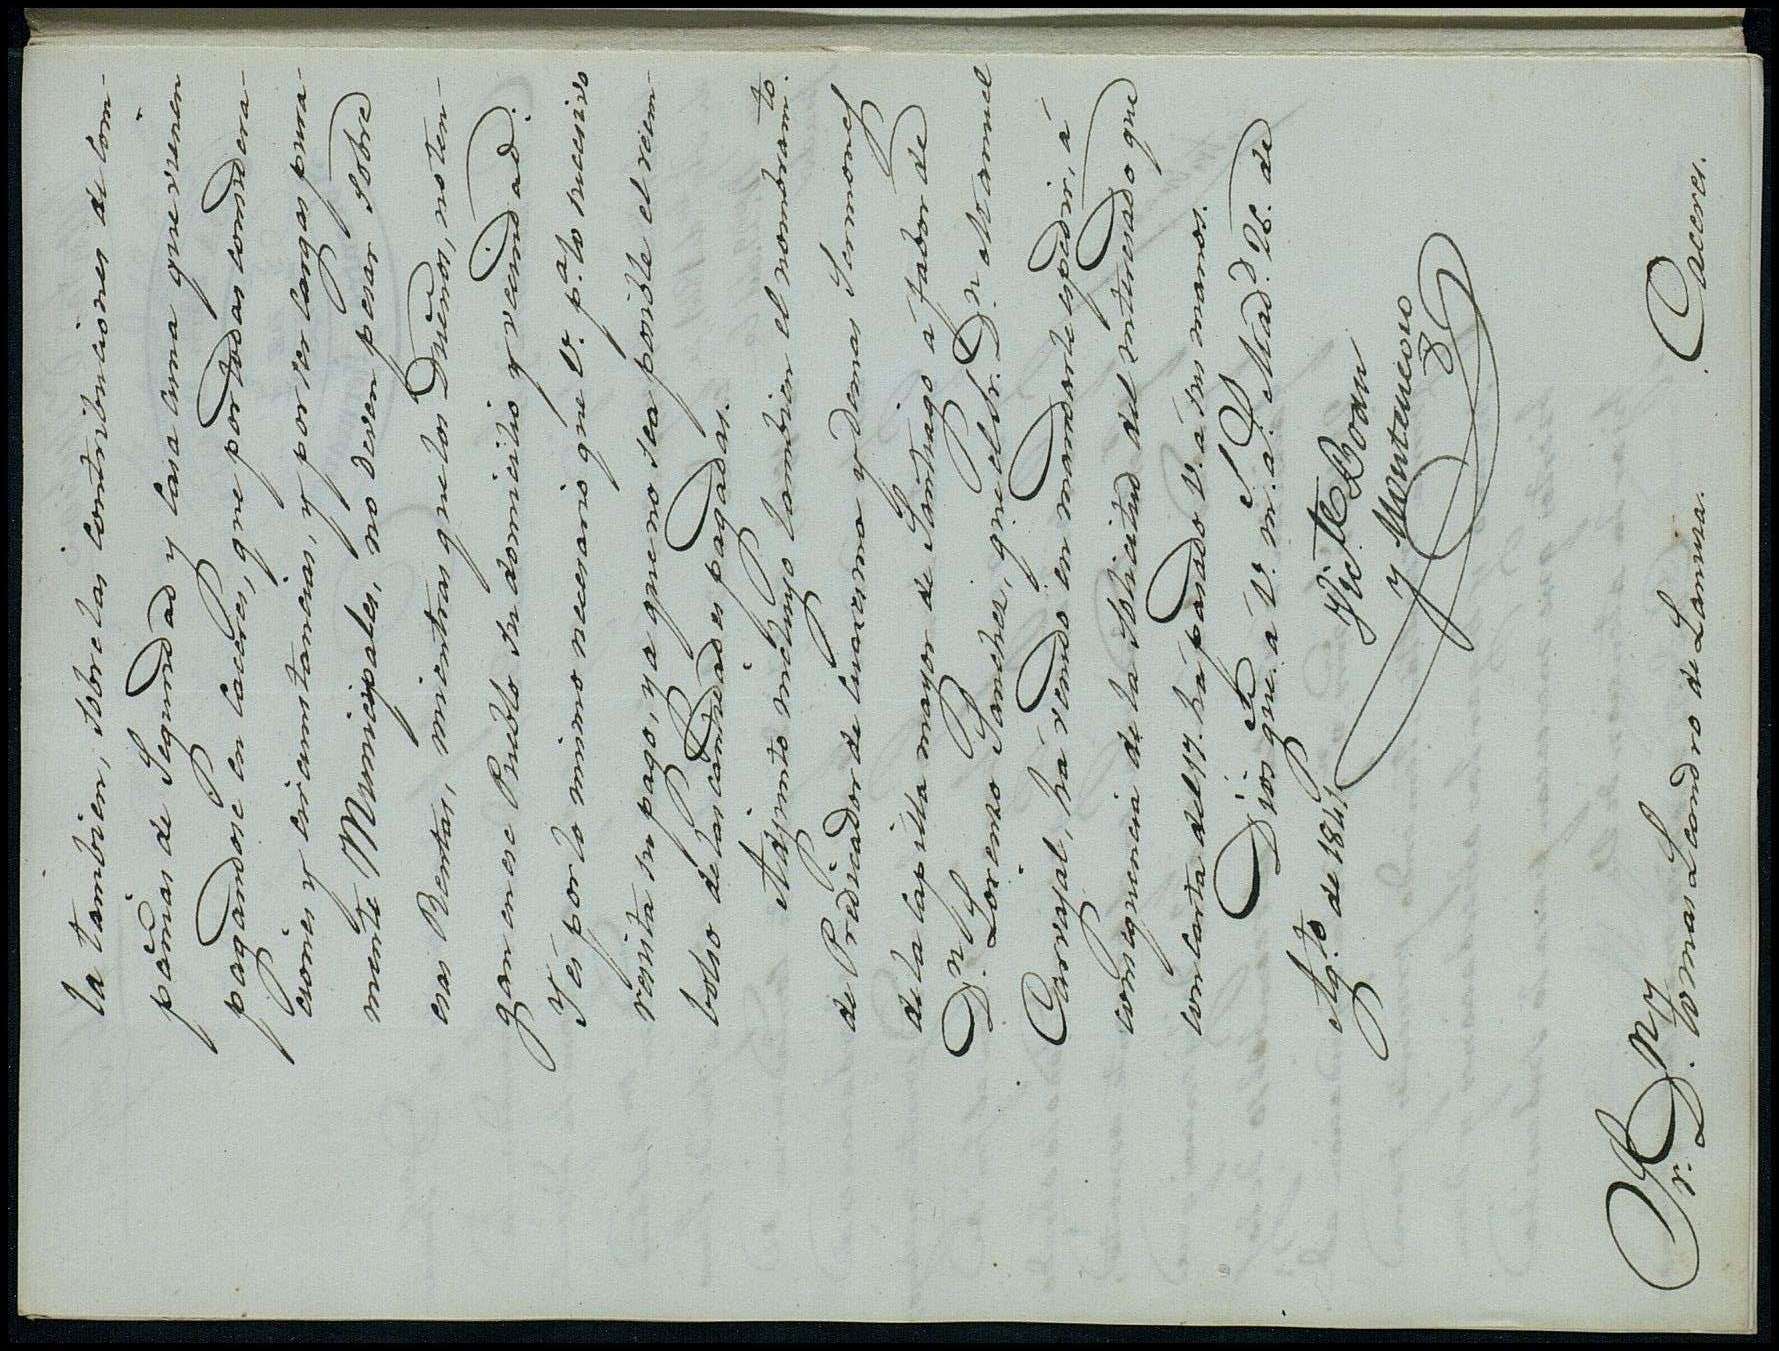 ta tambien, sobre las contribuciones de com-
pa͠nias de Segundad y Casa cuna que vienen
pagandose en Caceres, que por todas considera-
ciones y circunstancias, y por ser cargas pura-
mente Municipales, no deven pesar sobre
esas Rentas, mientras que los Due͠nos, no ten-
gan en ese Pueblo su domicilio y vecindad.
Y és por lo mismo necesario que V. p.ª lo sucesivo
resista su pago, ya que no sea posible el reem-
bolso de las cantidades pagadas.
Adjunto incluyo tambien el nombram.to
de Predicador de cuaresma y demas Sermones
de la capilla mayor de Santiago á fabor de
D.n Lorenzo Sanchez, que el S.r D.n Manuel
Carvajal, há venido en mandarle espedir, á
consequencia de la solicitud del interesado que
con carta del 17. há pasado V. á sus manos.
Dios gue. á V. m. a.s Mad.d 26. de
Ag.to de 1841.
Vic.te Boan
y Montenegro
S.r D.n Tomas Leandro de Lanza. Caceres.